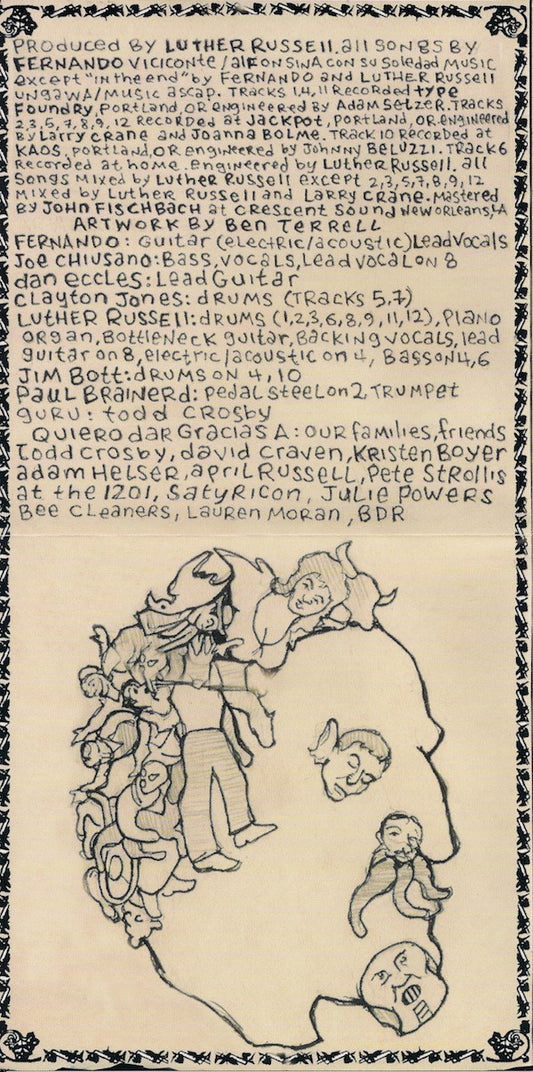 PRODUCED BY LUTHER RUSSELL. all SONGS BY
FERNANDO VICICONTE / alFONSINA CON SU SOledad MUSIC
except "IN the end" by FeRNANDO and LUTHER RUSSELL
UNGAWA/MUSIC ascap. TRACKS 1,4,11 RecoRded type
FoundRy, PORTLAND, OR engineeRed By Adam SelzeR. TRACKS
2,3,5,7,8,9,12 Recorded at JACKPOT, PORTLAND, OR. engineeRed
By LaRRy CRane and Joanna BOLMe. TRACK 10 RecoRded at
KAOS, PORTLAND, OR engineeRed by JOHNNY BeLUZZI. TRACK 6
RecoRded at home. Engineered by LutheR Russell. all
Songs Mixed by Luther Russell except 2,3,5,7,8,9,12
Mixed by LutheR Russell and LaRRy CRane. Mastered
By JOHN FISCHBACH at CRescent Sound New ORleans, LA
ARTWORK By Ben TeRRELL
FERNANDO: Guitar (eLectRic/acoustic) Lead vocals
Joe CHiusano: Bass, vocals, Lead vocaL on 8
dan eccles: Lead Guitar
Clayton Jones: dRums (TRacks 5,7)
LUTHER RUSSELL: dRums (1,2,3,6,8,9,11,12), Piano
ORgan, BottleNeck guitar, Backing vocals, lead
guitar on 8, electric/acoustic on 4, Bass on 4,6
JIM Bott: dRums on 4,10
PAUL BRAINeRd: pedal steel on 2, TRUMPet
guRu: todd CROSBY
QUIERO daR GRacias A: OUR families, friends
Todd cRosby, david CRaven, KRisten Boyer
adam HeLseR, apRil RUSSELL, Pete StRollis
at the 1201, SatyRicon, JULie POWERS
Bee CLeaneRs, LauRen MoRan, BDR